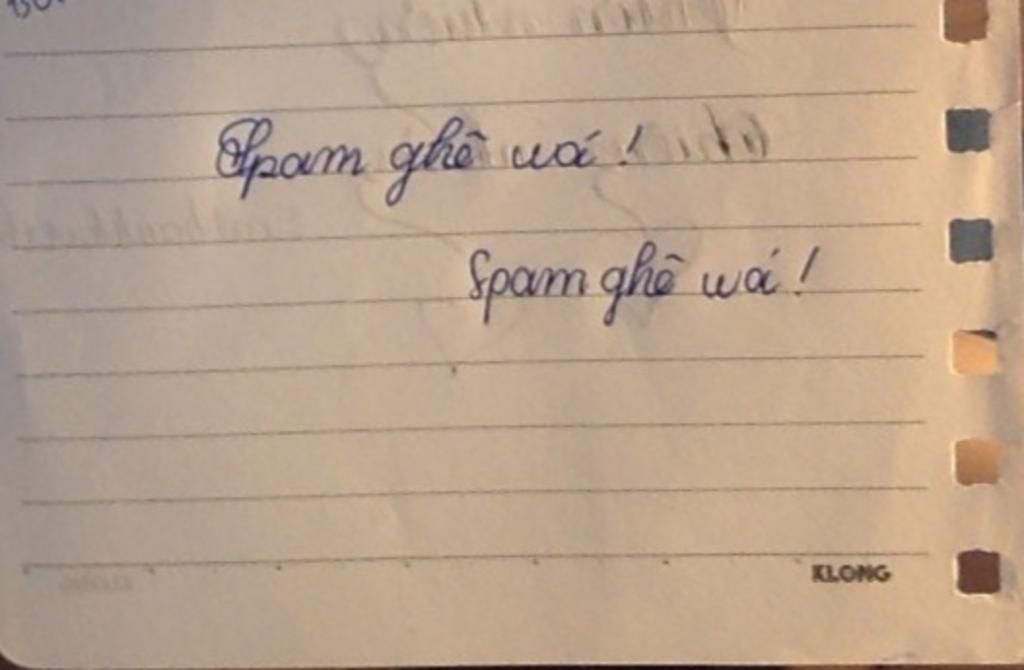 Spam ghê wá !
Spam ghê wá !
KLONG